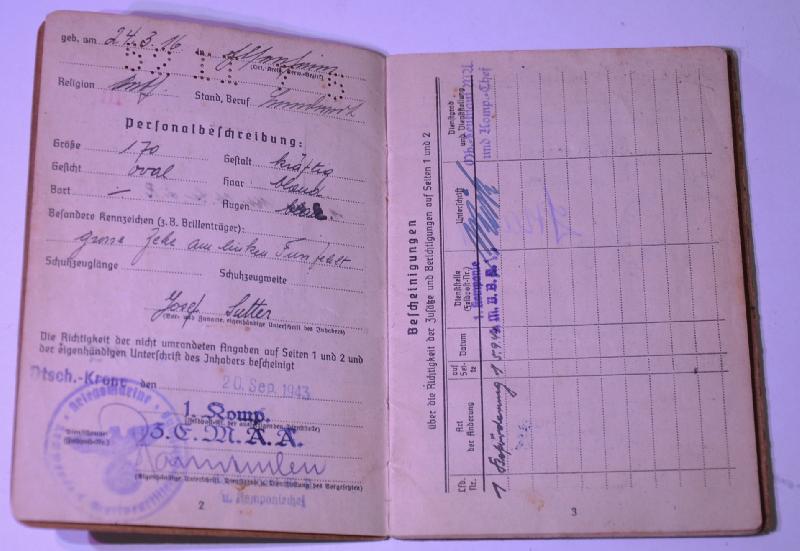 geb. am 24.3.16 in
(Ort, Kreis, Verw.-Bezirk)
Religion Stand, Beruf Landwirt
Personalbeschreibung:
Größe 170 Gestalt kräftig
Gesicht oval Haar blond
Bart — Augen
Besondere Kennzeichen (z. B. Brillenträger):
grosse Zehe am linken
Schuhzeuglänge Schuhzeugweite
Josef Sutter
(Vor- und Zuname, eigenhändige Unterschrift des Inhabers)
Die Richtigkeit der nicht umrandeten Angaben auf Seiten 1 und 2 und
der eigenhändigen Unterschrift des Inhabers bescheinigt
Dtsch.-Krone den 20. Sep. 1943
1. Komp.
3. E. M. A. A.
Kriegsmarine
(Eigenhändige Unterschrift, Dienstgrad u. Dienststellung des Vorgesetzten)
u. Kompaniechef
2
Bescheinigungen
über die Richtigkeit der Zusätze und Berichtigungen auf Seiten 1 und 2
Lfd. Nr.
Art der Änderung
auf Sei-te
Datum
Dienststelle (Feldpost-Nr.)
Unterschrift
Dienstgrad und Dienststellung
1 Beförderung 1 5.9.44
1. Kompanie
und Komp.-Chef
3